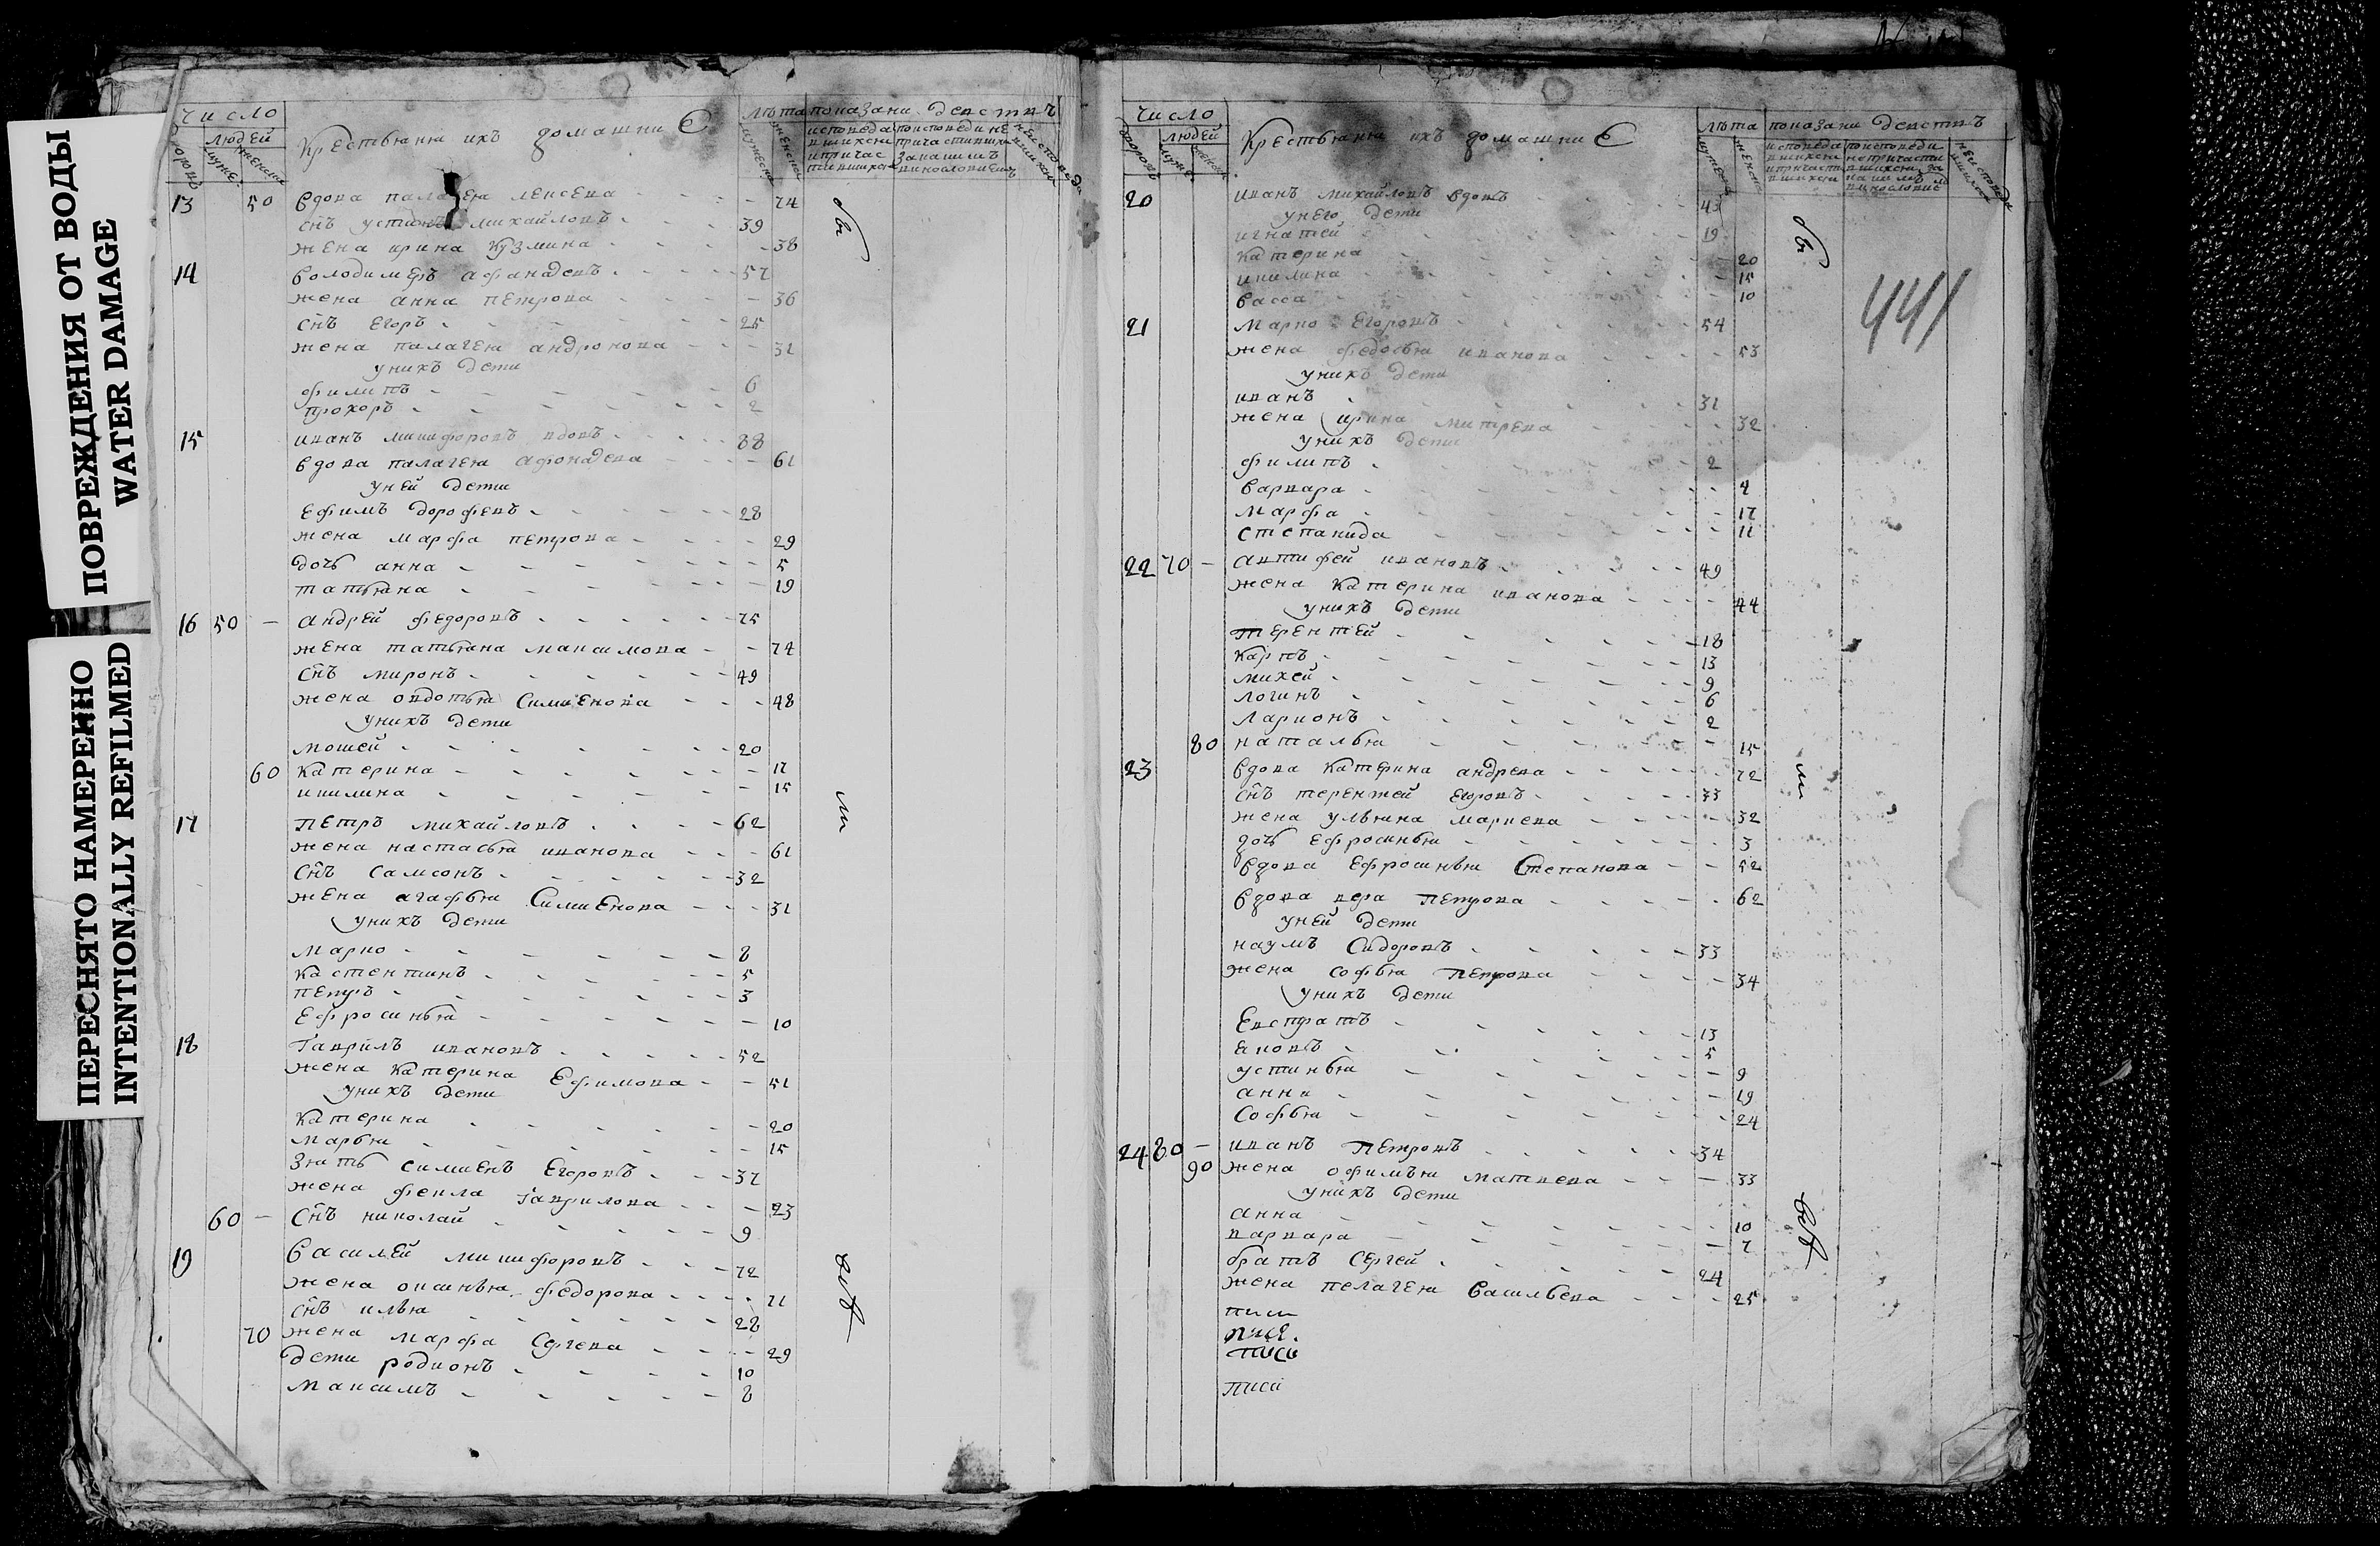 ПОВРЕЖДЕНИЯ ОТ ВОДЫ
WATER DAMAGE
ПЕРЕСНЯТО НАМЕРЕННО
INTENTIONALLY REFILMED
число
людей
Крестьянѣ ихъ домашние
лѣта показани действъ
13 50 вдова палагея 74
снъ михайловъ 39
жена ирина кузмина 38
14 володимеръ афанасевъ 57
жена анна петрова 36
снъ егоръ 25
жена палагея андронова 31
у нихъ дети
филипъ 6
прохоръ 2
15 иванъ никифоровъ вдовъ 88
вдова палагея афонасева 61
у ней дети
ефимъ дорофевъ 28
жена марфа петрова 29
дочь анна 5
татьяна 19
16 50 андрей федоровъ 75
жена татьяна максимова 74
снъ миронъ 49
жена овдотья симиенова 48
у нихъ дети
мокей 20
60 катерина 17
акилина 15
17 петръ михайловъ 62
жена настасья иванова 61
снъ самсонъ 32
жена агафья симиенова 31
у нихъ дети
марко 8
кастентинъ 5
петръ 3
ефросинья 10
18 гаврилъ ивановъ 52
жена катерина ефимова 51
у нихъ дети
катерина 20
марья 15
зять симиенъ егоровъ 37
жена фекла гаврилова 23
60 снъ николай 9
19 василей никифоровъ 72
жена оксинья федорова 71
снъ илья 28
70 жена марфа сергева 29
дети родионъ 10
максимъ 8
оы
ли
число
людей
Крестьянѣ ихъ домашние
лѣта показани действъ
20 иванъ михайловъ вдовъ 43
у него дети
игнатей 19
катерина 20
акилина 15
васса 10
441
21 марко егоровъ 54
жена федосья иванова 53
у нихъ дети
иванъ 31
жена ирина митрева 32
у нихъ дети
филипъ 2
варвара 4
марфа 17
степанида 11
22 70 антифей ивановъ 49
жена катерина иванова 44
у нихъ дети
терентей 18
карпъ 13
михей 9
логинъ 6
ларионъ 2
80 наталья 15
23 вдова катерина андрева 72
снъ терентей егоровъ 33
жена ульяна маркева 32
дочь ефросинья 3
вдова ефросинья степанова 52
вдова вера петрова 62
у ней дети
наумъ сидоровъ 33
жена софья петрова 34
у нихъ дети
евстратъ 13
яковъ 5
устинья 9
анна 19
софья 24
24 80 иванъ петровъ 34
90 жена офимья матвева 33
у нихъ дети
анна 10
варвара 7
братъ сергей 24
жена пелагея васильева 25
писи
писи